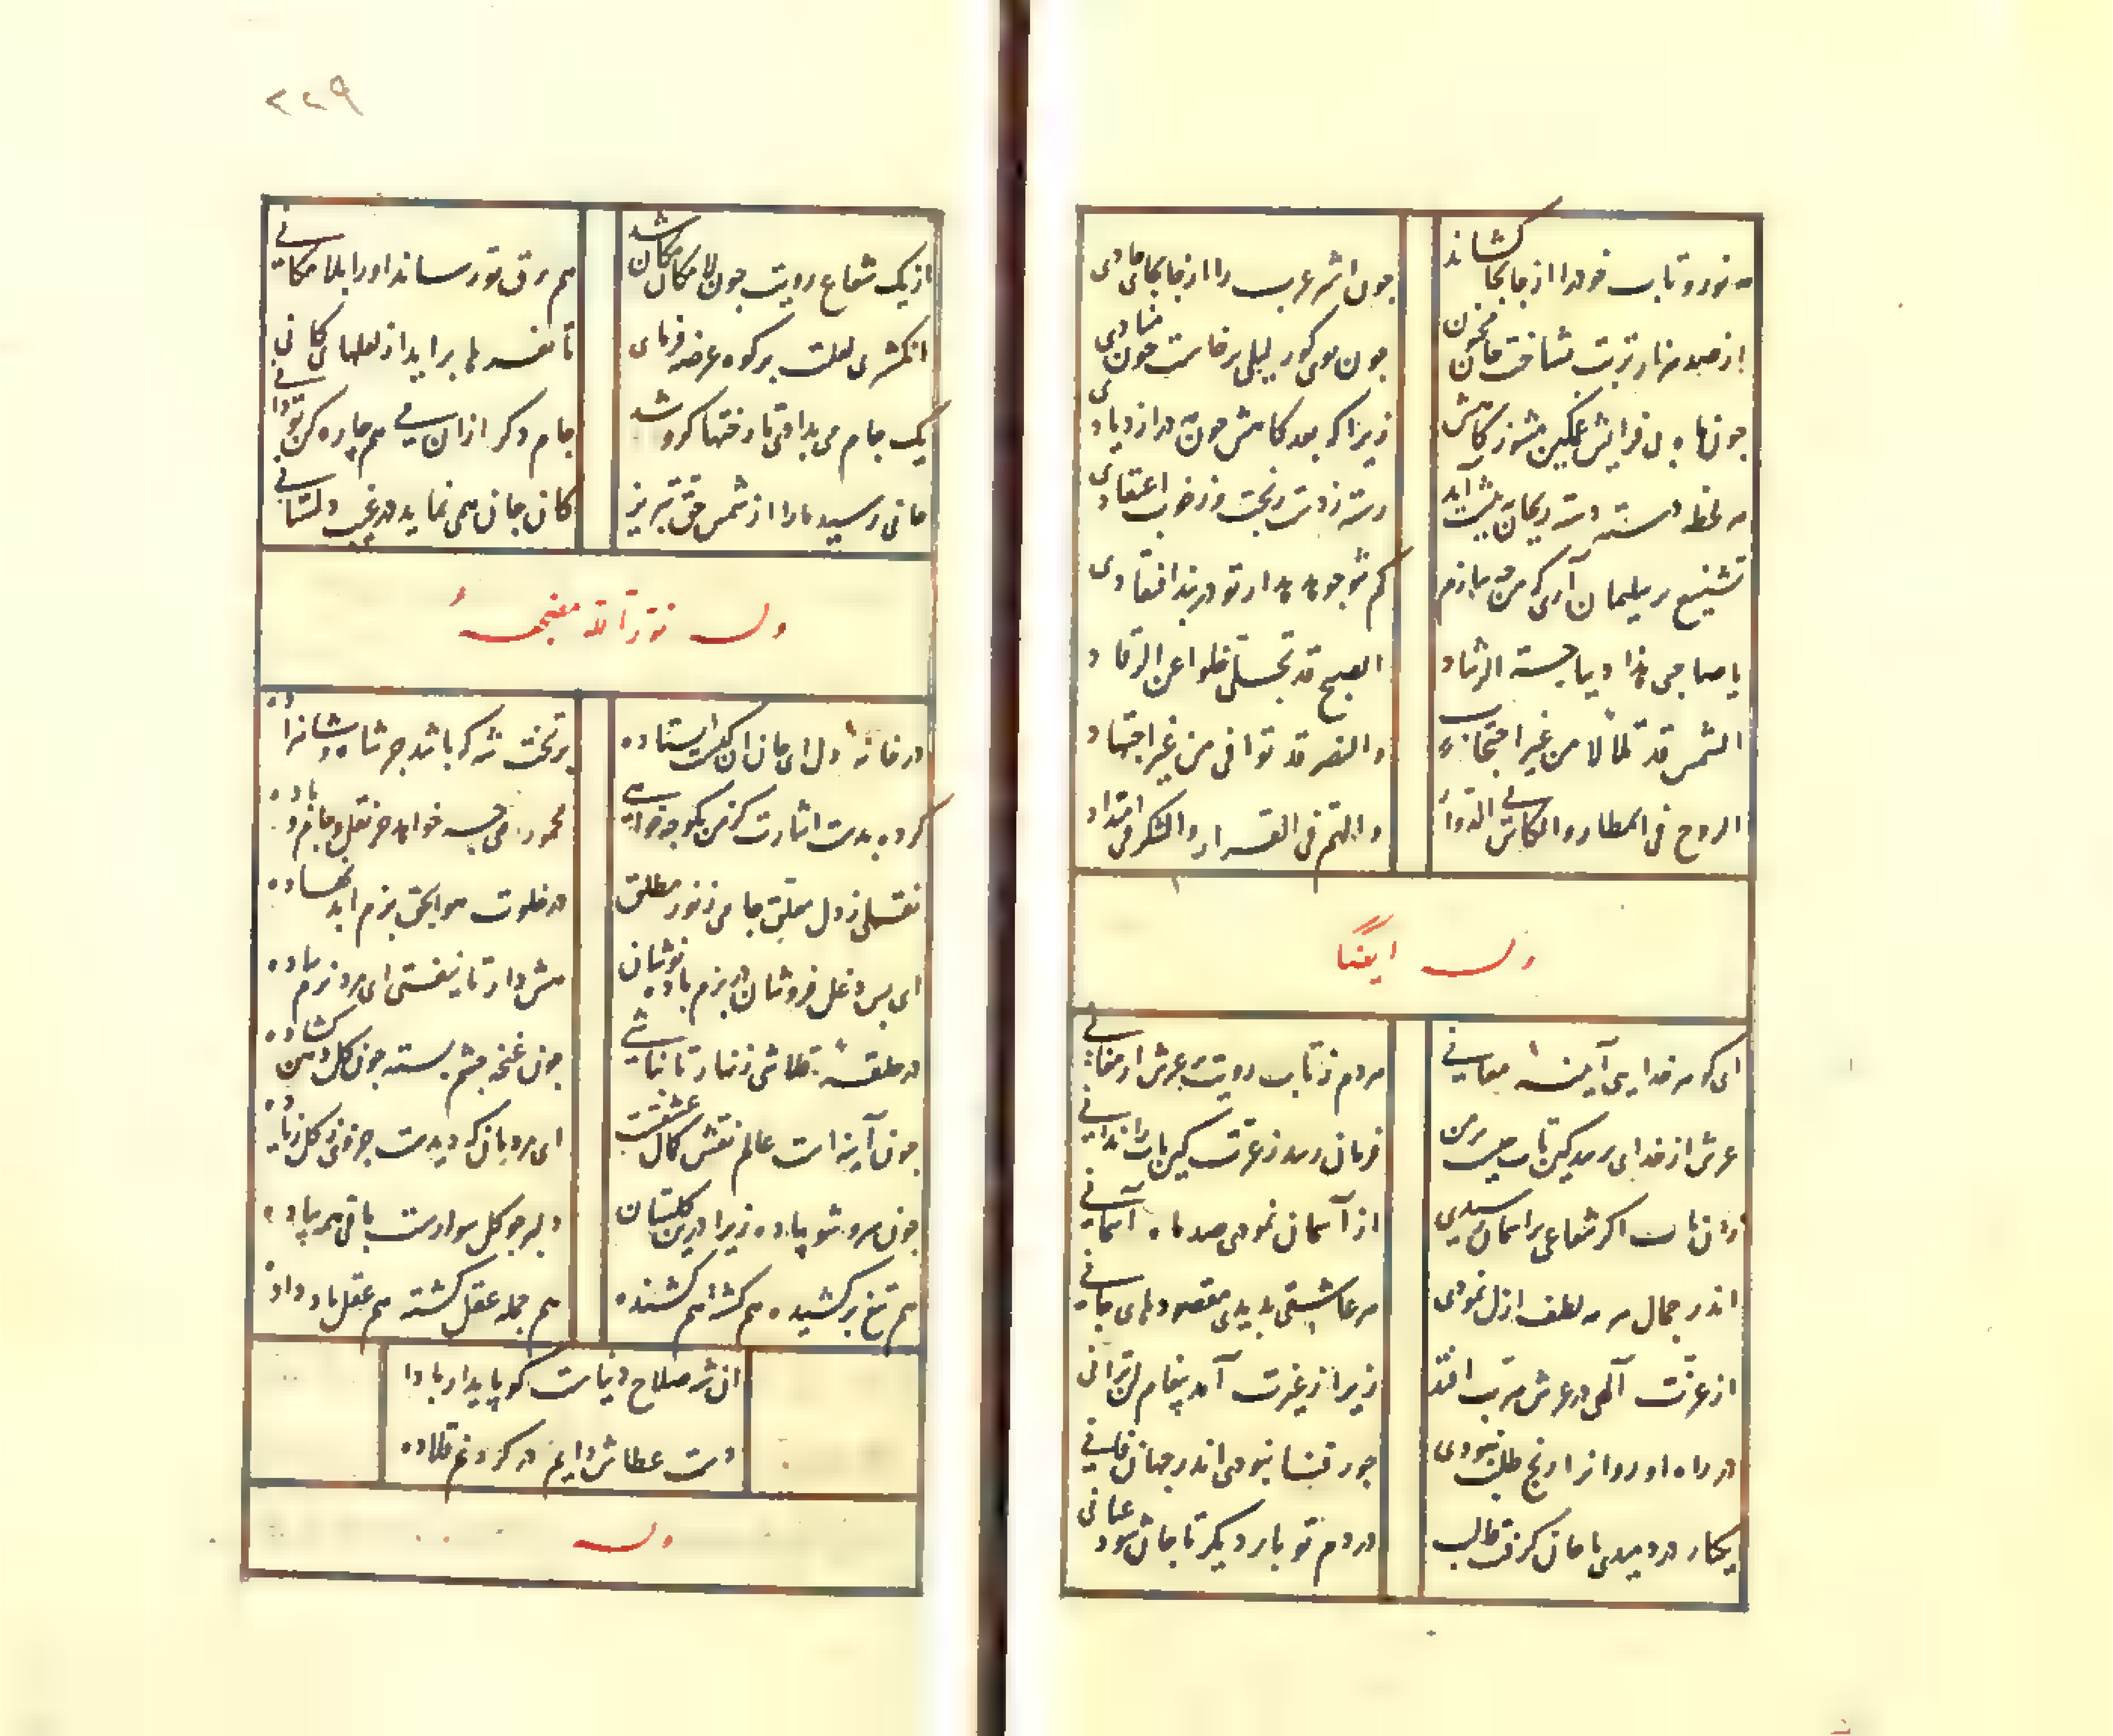 چون اشتر عرب را از جا بجای حادی
از صد هزار تربت بشناخت جان مجنون
چون بوی کور لیلی برخاست چون منادی
چون ماه پی فزایش غمکین مشو ز کاهش
زیرا که بعد کاهش چون مه در ازدیادی
هر لحظه دسته دسته ریحان به پیشت آید
رسته ز دست رنجت وز خوب اعتقادی
تشنیع بر سلیمان آری که من
کم شو چو هدهد ار تو در بند افتقادی
یا صاحبی هذا دیباجة الرشاد
الصبح قد تجلی حلوا عن الرقاد
الشمس قد تلالا من غیر احتجاب
والنصر قد توافی من غیر اجتهاد
الروح فی المطار والکاس فی الدوار
والهم فی الفرار والشکر فی امتداد
وله ایضا
ای که مر خدایی آیینه معانی
هر دم ز تاب رویت بر عرش ارمغانی
عرش از خدای پرسد کین تاب کیست بر من
فرمان رسد ز غیرت کین تاب را ندانی
زان تاب اکر شعاعی بر اسمان رسیدی
از آسمان نمودی صد ماه آسمانی
اندر جمال هر مه لطف ازل نمودی
هر عاشقی بدیدی مقصودهای جانی
در راه او روانرا رنج طلب نبودی
جور فنا نبودی اندر جهان فانی
یکبار دردمیدی تا جان کرفت قالب
دردم تو بار دیکر تا جان شود عیانی
۲۲۹
از یک شعاع رویت چون لامکان مکان شد
هم برق تو رساند او را بلامکانی
انکشتری لعلت بر کوه عرضه فرمای
تا نعره ها براید از لعلهای کانی
یک جام می بدادی تا رختها کرو شد
جام دکر ازان می هم چاره کن تو دانی
جانی رسید ما را از شمس حق تبریز
کان جان همی نماید در غیب دلستانی
وله نور الله مضجعه
در خانه دل ای جان ان کیست ایستاده
بر تخت شه که باشد جز شاه و شاه زاده
کرده بدست اشارت کز من بکو چه خواهی
مخمور می چه خواهد جز نقل و جام و باده
نقلی ز دل معلق جامی ز نور مطلق
در خلوت هو الحق بزم ابد نهاده
ای بس دغل فروشان در بزم باده نوشان
هش دار تا نیفتی ای مرد نرم و ساده
در حلقه قلاشی زنهار تا نباشی
چون غنچه چشم بسته چون کل دهن کشاده
چون آینه است عالم نقش کمال عشقست
ای مردمان که دیدست جزوی ز کل زیاده
چون سرو شو پیاده زیرا درین کلستان
دلبر چو کل سوارست باقی همه پیاده
هم تیغ برکشیده هم کشته هم کشنده
هم جمله عقل کشته هم عقل باد داده
ان شه صلاح دینست کو پایدار بادا
دست عطاش دایم در کردنم قلاده
وله